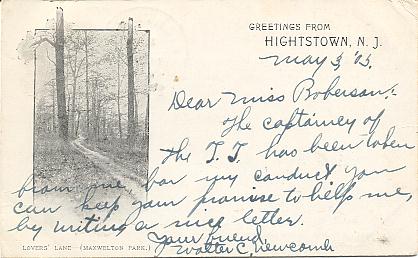 GREETINGS FROM
HIGHTSTOWN, N. J.
May 3, '05.
Dear Miss Roberson:
The captaincy of
the T. T. has been taken
from me for my conduct you
can keep your promise to help me,
by writing a nice letter.
Your friend,
Walter C. Newcomb
LOVERS' LANE—(MAXWELTON PARK.)